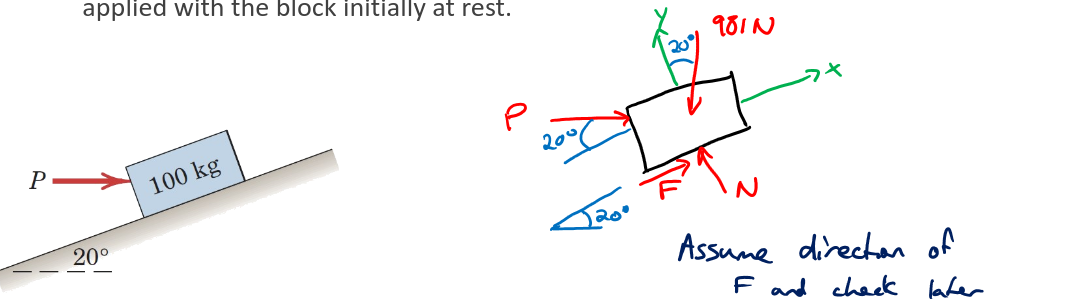 applied with the block initially at rest.
y
20°
981N
x
P
20°
P
100 kg
F
N
20°
20°
Assume direction of
F and check later